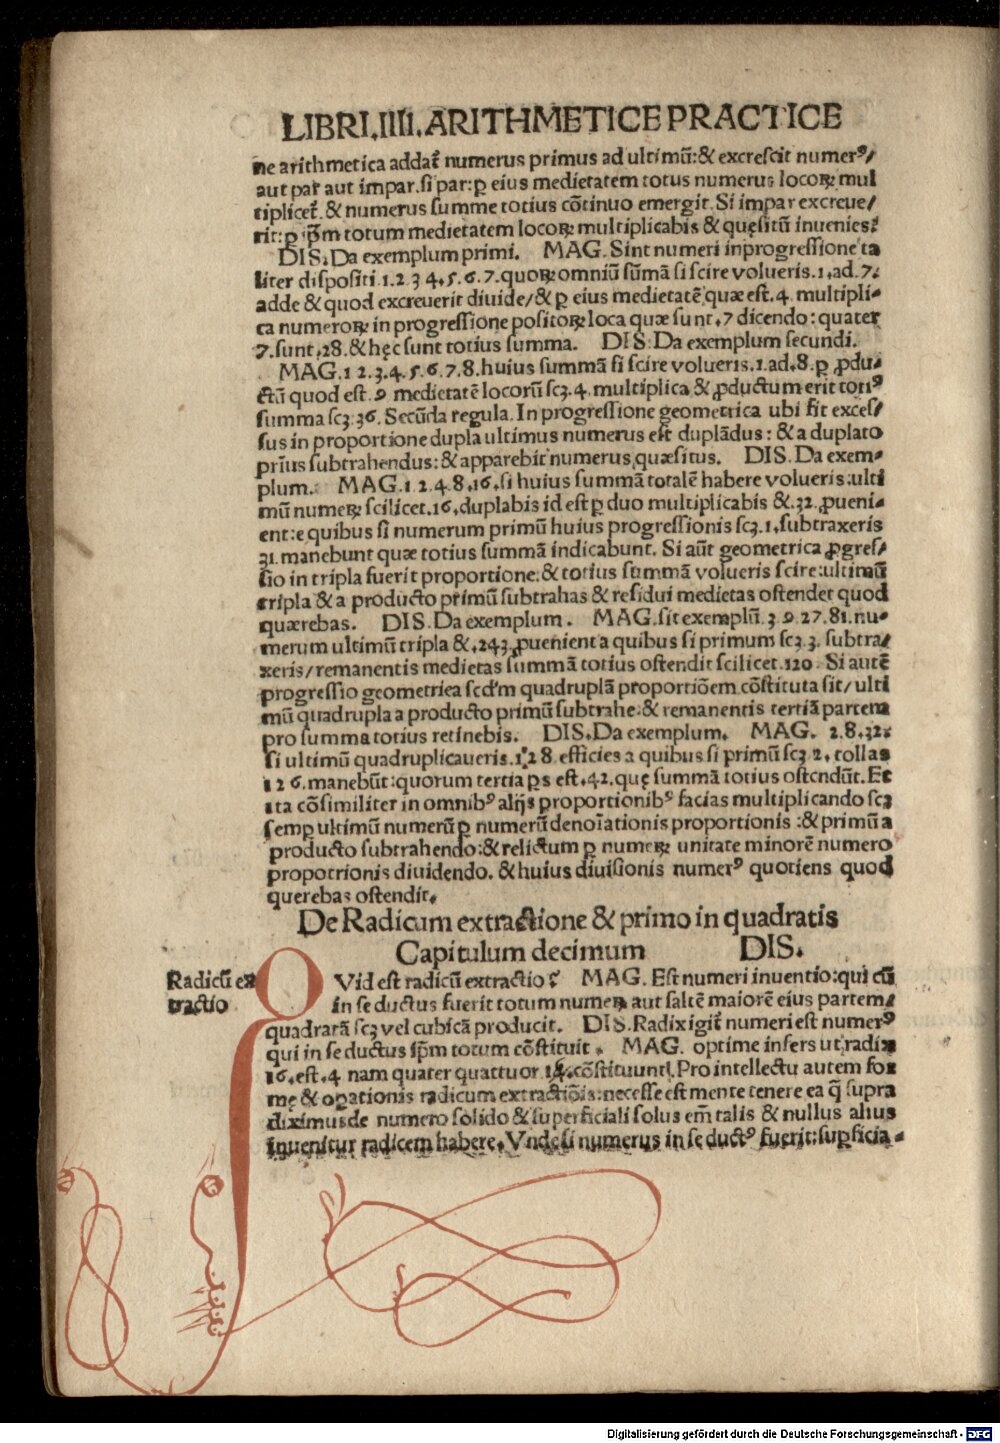 LIBRI.IIII.ARITHMETICE PRACTICE
ne arithmetica addat᷑ numerus primus ad ultimū:& excrescit numerꝰ/
aut par aut impar.si par:ꝑ eius medietatem totus numerus locoꝝ mul
tiplicet᷑.& numerus summe totius cōtinuo emergit.Si impar excreue/
rit:ꝑ ip̄m totum medietatem locoꝝ multiplicabis & quęsitū inuenies.
DIS.Da exemplum primi. MAG.Sint numeri inprogressione ta
liter dispositi.1.2 3 4.5.6.7.quoꝝ omniū sūmā si scire volueris.1.ad.7.
adde & quod excreuerit diuide/& ꝑ eius medietatē quæ est.4. multipli-
ca numeroꝝ in progressione positoꝝ loca quæ sunt.7 dicendo:quater
7.sunt.28.& hęc sunt totius summa. DIS.Da exemplum secundi.
MAG.1 2.3.4.5.6.7.8.huius summā si scire volueris.1.ad.8.ꝑ ꝓdu-
ctū quod est.9 medietatē locorū scꝫ.4.multiplica & ꝓductum erit totiꝰ
summa scꝫ.36.Secūda regula.In progressione geometrica ubi fit exces/
sus in proportione dupla ultimus numerus est duplādus:& a duplato
prius subtrahendus:& apparebit numerus quæsitus. DIS.Da exem-
plum. MAG.1 2.4.8.16.si huius summā totalē habere volueris:ulti
mū numeꝝ scilicet.16.duplabis id est ꝑ duo multiplicabis &.32.ꝓueni-
ent:e quibus si numerum primū huius progressionis scꝫ.1.subtraxeris
31.manebunt quæ totius summā indicabunt. Si aūt geometrica ꝓgres/
sio in tripla fuerit proportione:& totius summā volueris scire:ultimū
tripla & a producto primū subtrahas & residui medietas ostendet quod
quærebas. DIS.Da exemplum. MAG.sit exemplū.3 9 27.81.nu-
merum ultimū tripla &.243.ꝓuenient a quibus si primum scꝫ 3. subtra/
xeris/remanentis medietas summā totius ostendit scilicet.120. Si autē
progressio geometrica scd'm quadruplā proportiōem cōstituta sit/ulti
mū quadrupla a producto primū subtrahe:& remanentis tertiā partem
pro summa totius retinebis. DIS.Da exemplum. MAG. 2.8.32.
si ultimū quadruplicaueris.128 efficies a quibus si primū scꝫ 2. tollas
126.manebūt:quorum tertia ꝑs est.42.quę summā totius ostendūt.Et
ita cōsimiliter in omnibꝰ alijs proportionibꝰ facias multiplicando scꝫ
semꝑ ultimū numerū ꝑ numerū denoīationis proportionis:& primū a
producto subtrahendo:& relictum ꝑ numeꝝ unitate minorē numero
propotrionis diuidendo.& huius diuisionis numerꝰ quotiens quod
querebas ostendit.
De Radicum extractione & primo in quadratis
Capitulum decimum DIS.
Radicū ex
tractio
QVid est radicū extractio? MAG.Est numeri inuentio:qui cū
in se ductus fuerit totum numeꝝ aut saltē maiorē eius partem/
quadratā scꝫ vel cubicā producit. DIS.Radix igit᷑ numeri est numerꝰ
qui in se ductus ip̄m totum cōstituit. MAG. optime infers ut radix
16.est.4 nam quater quattuor 16.cōstituunt.Pro intellectu autem for
mę & oꝑationis radicum extractiōis:necesse est mente tenere ea q̄ supra
diximus de numero solido & superficiali solus em̄ talis & nullus alius
inuenitur radicem habere.Vnde si numerus in se ductꝰ fuerit:suꝑficia-
Digitalisierung gefördert durch die Deutsche Forschungsgemeinschaft - DFG